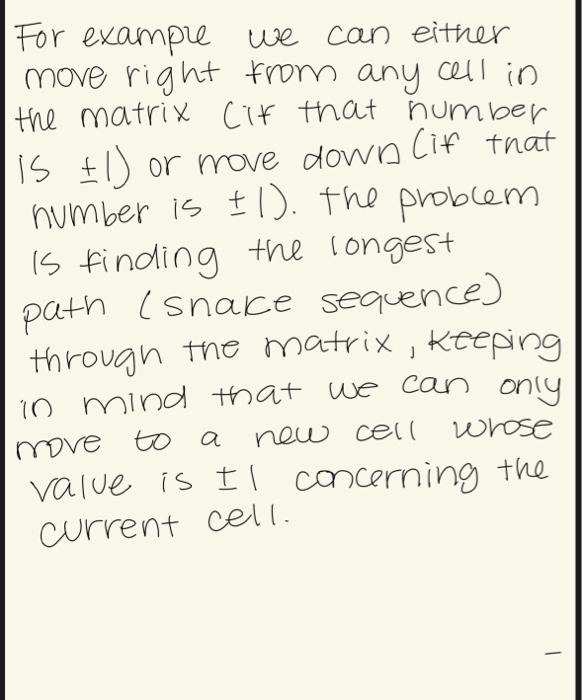 For example we can either
move right from any cell in
the matrix (if that number
is ±1) or move down (if that
number is ±1). The problem
is finding the longest
path (snake sequence)
through the matrix, keeping
in mind that we can only
move to a new cell whose
value is ±1 concerning the
current cell.